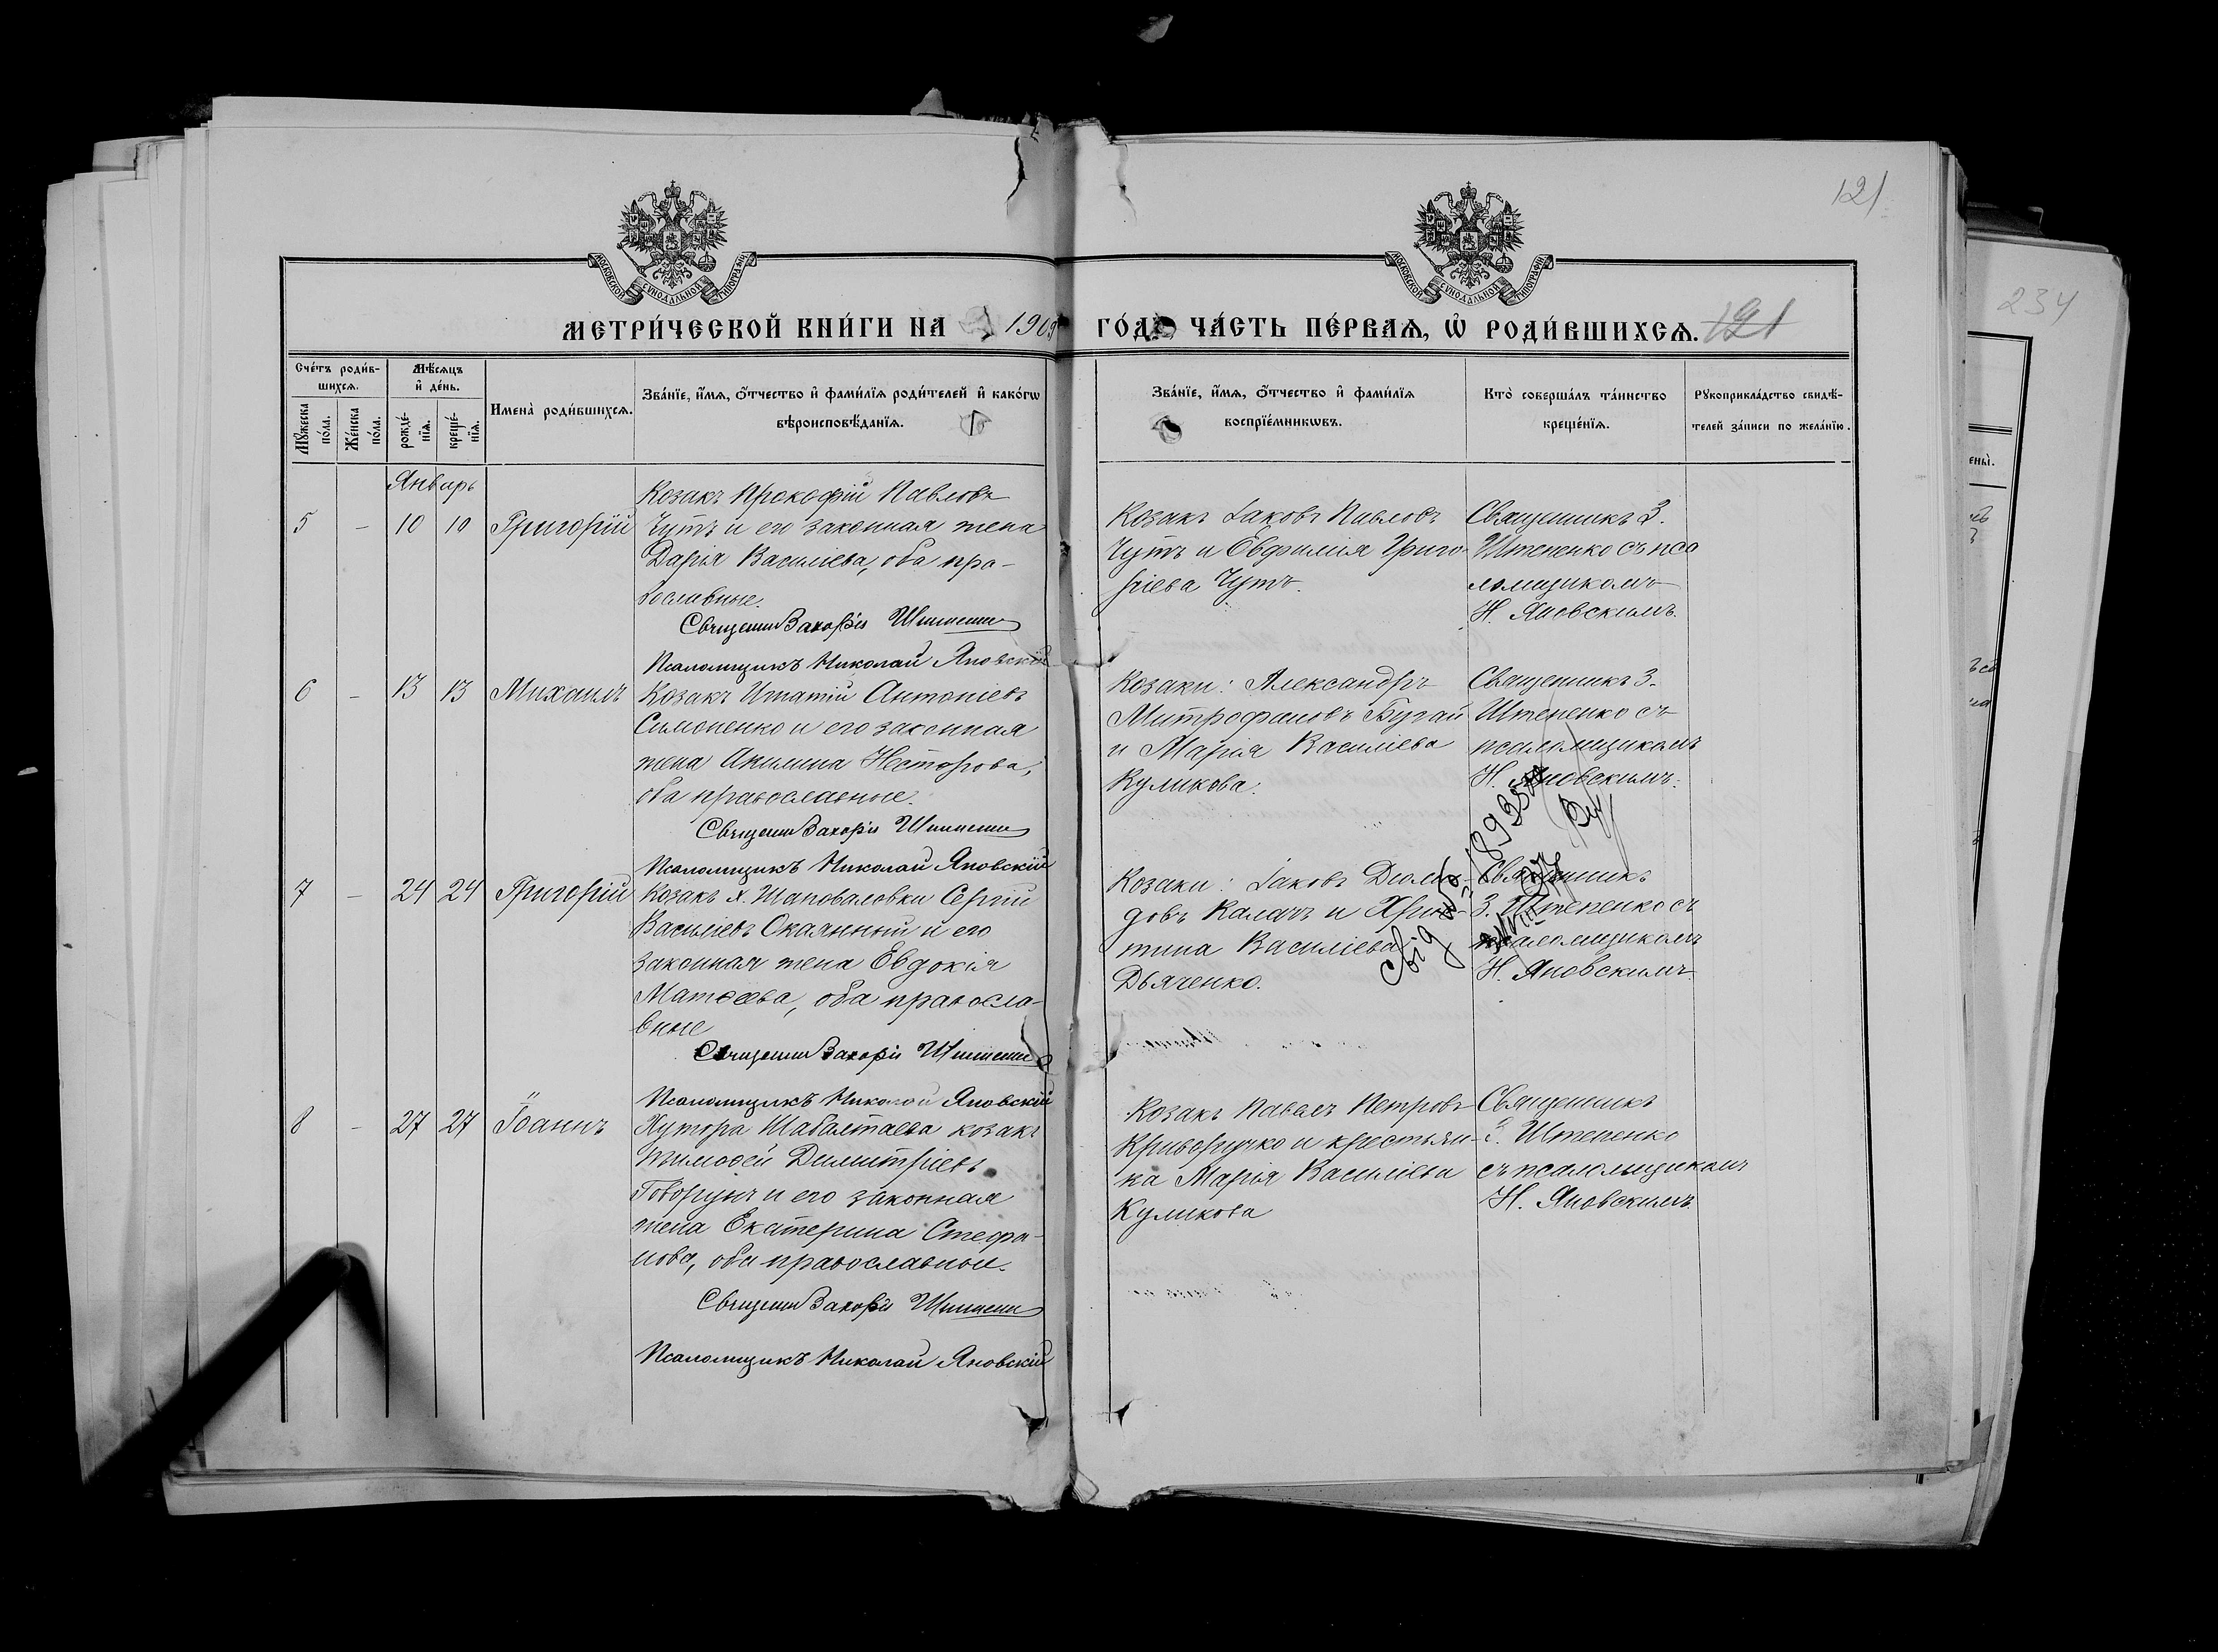 121
234
МОСКОВСКОЙ СУНОДАЛЬНОЙ ТИПОГРАФІИ
МОСКОВСКОЙ СУНОДАЛЬНОЙ ТИПОГРАФІИ
МЕТРИ́ЧЕСКОЙ КНИ́ГИ НА 1909 ГО́ДЪ ЧА́СТЬ ПЕ́РВАѦ, Ѿ РОДИ́ВШИХСѦ. 121
Сче́тъ роди́в-
шихсѧ.
Мꙋжеска по́ла.
Же́нска по́ла.
Мѣ́сѧцъ
и҆ де́нь.
рожде́-
нїѧ.
креще́-
нїѧ.
Имена̀ роди́вшихсѧ.
Зва́нїе, и҆́мѧ, ѻ҆́тчество и҆ фами́лїѧ роди́телей и҆ како́гѡ
вѣроисповѣ́данїѧ.
Зва́нїе, и҆́мѧ, ѻ҆́тчество и҆ фами́лїѧ
воспрїе́мникѡвъ.
Кто̀ соверша́лъ та́инство
креще́нїѧ.
Рꙋкоприкла́дство свидѣ́-
телей за́писи по жела́нїю.
Январь
5 – 10 10 Григорій
Козакъ Прокофій Павловъ
Чутъ и его законная жена
Дарія Василіева, оба пра-
вославные.
Священн Захарія
Псаломщикъ Николай Яновскій
Козакъ Іаковъ Павловъ
Чутъ и Евфимія Григо-
ріева Чутъ.
Священникъ З.
Штепенко съ пса
ломщикомъ
Н. Яновскимъ.
6 – 13 13 Михаилъ
Козакъ Игнатій Антоніевъ
Симоненко и его законная
жена Акилина Несторова,
оба православные.
Священн Захарія
Псаломщикъ Николай Яновскій
Козаки: Александръ
Митрофановъ Бугай
и Марія Василіева
Куликова.
Священникъ З.
Штепенко съ
псаломщикомъ
Н. Яновскимъ.
7 – 24 24 Григорій
Козакъ х. Шаповаловки Сергій
Василіевъ Окаянный и его
законная жена Евдокія
Матѳеева, оба правосла-
вные
Священн Захарія
Псаломщикъ Николай Яновскій
Козаки: Іаковъ
довъ Калачъ и
тина Василіева
Дьяченко.
Священникъ
З. Штепенко съ
псаломщикомъ
Н. Яновскимъ.
8 – 27 27 Іоаннъ
Хутора Шабалтаева козакъ
Тимоѳей Димитріевъ
Говорунъ и его законная
жена Екатерина Стефа-
нова, оба православные.
Священн Захарія
Псаломщикъ Николай Яновскій
Козакъ Павелъ Петровъ
Криворучко и крестьян-
ка Марія Василіева
Куликова
Священникъ
З. Штепенко
съ псаломщикомъ
Н. Яновскимъ.